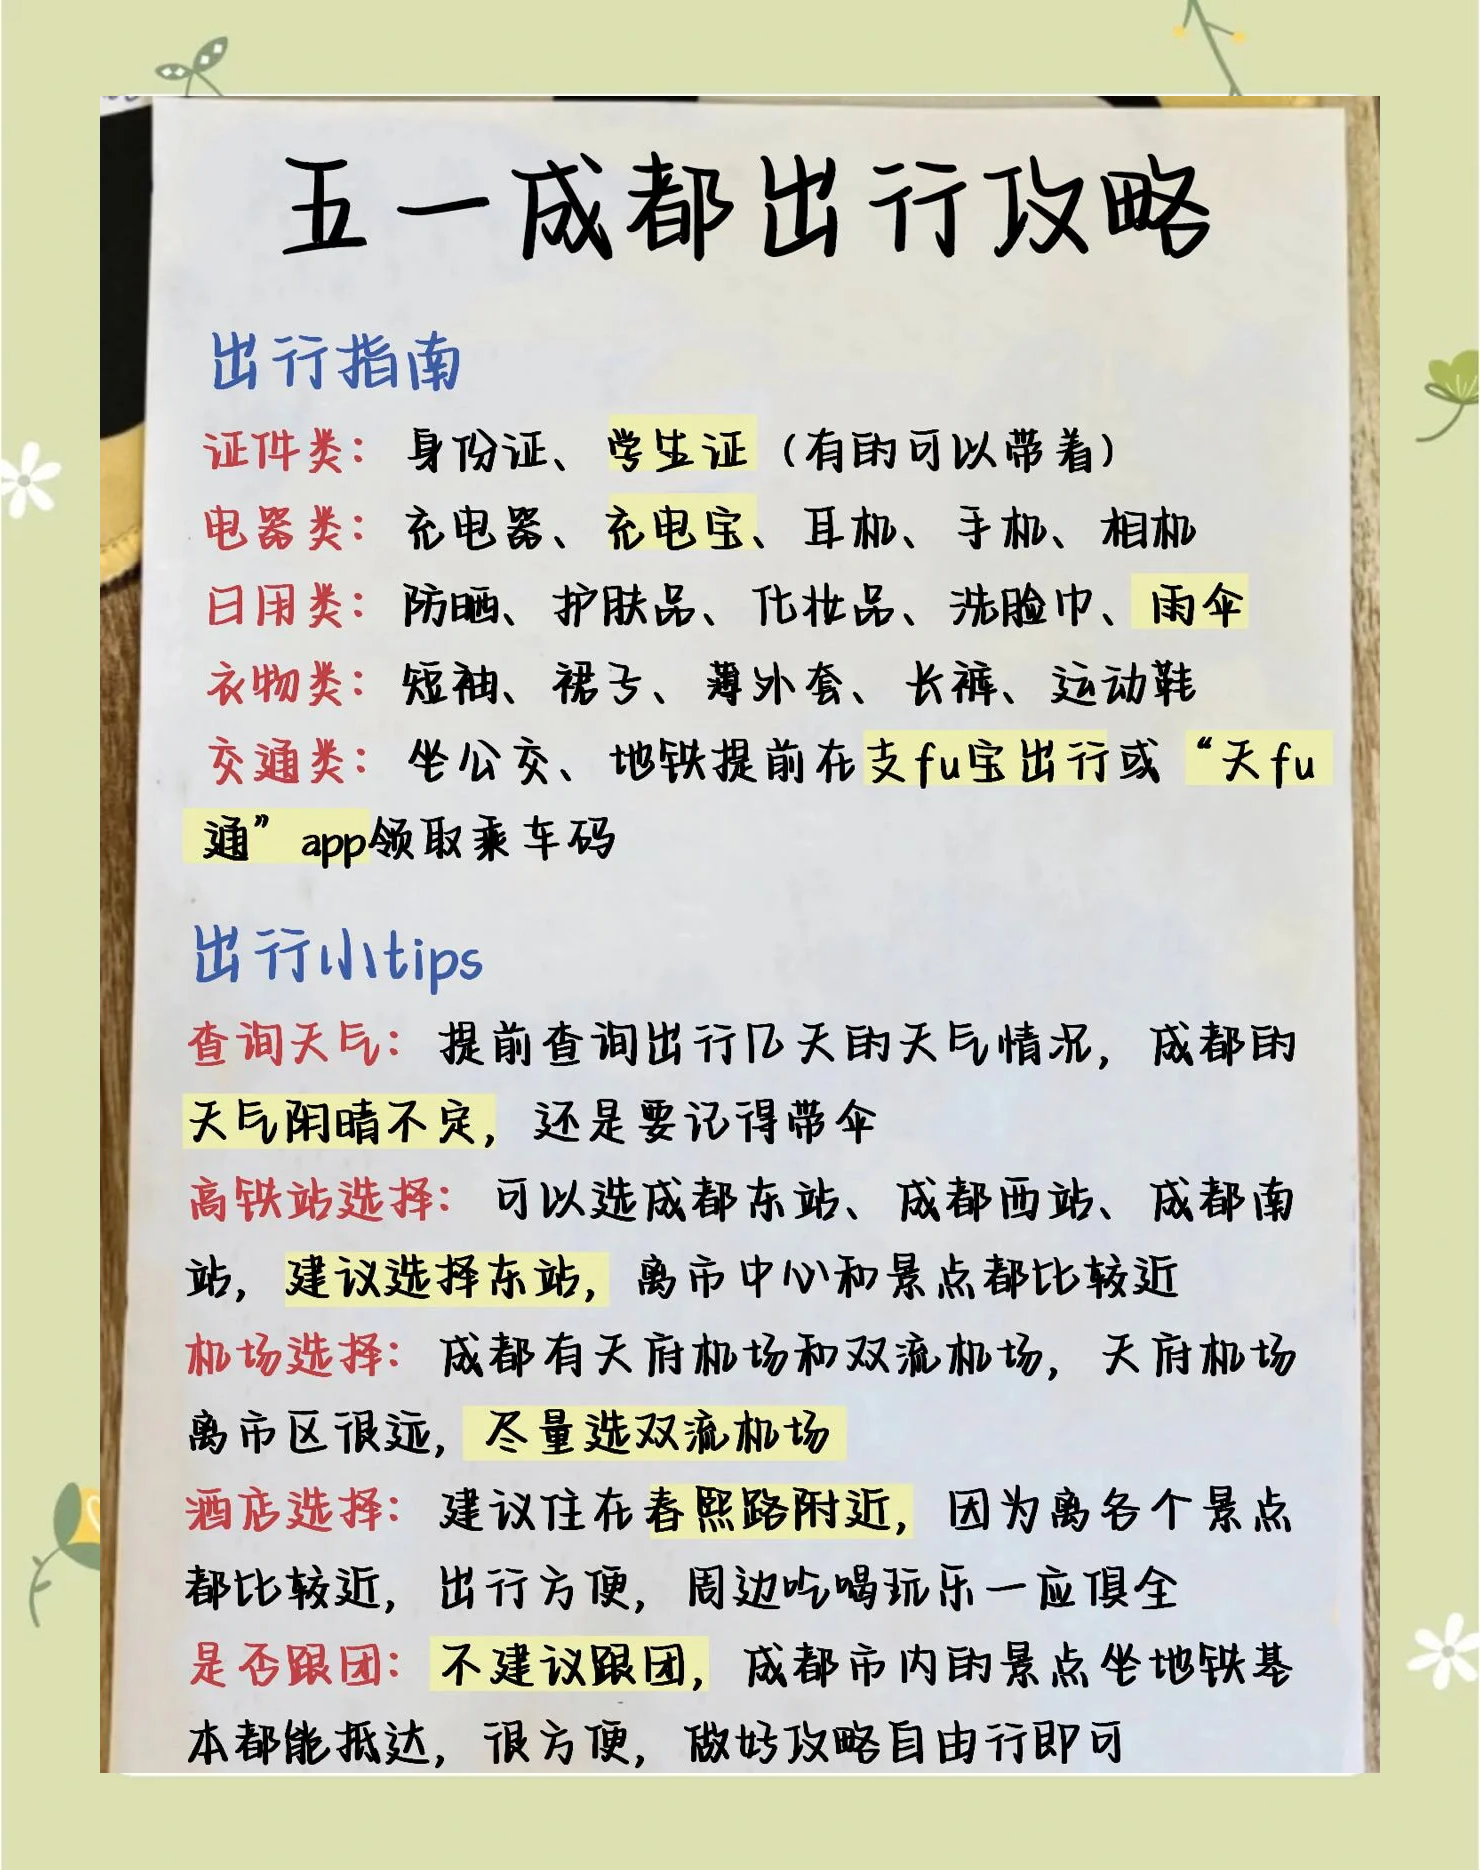 五一成都出行攻略
出行指南
证件类：身份证、学生证（有的可以带着）
电器类：充电器、充电宝、耳机、手机、相机
日用类：防晒、护肤品、化妆品、洗脸巾、雨伞
衣物类：短袖、裙子、薄外套、长裤、运动鞋
交通类：坐公交、地铁提前在支fu宝出行或“天fu
通”app领取乘车码
出行小tips
查询天气：提前查询出行几天的天气情况，成都的
天气阴晴不定，还是要记得带伞
高铁站选择：可以选成都东站、成都西站、成都南
站，建议选择东站，离市中心和景点都比较近
机场选择：成都有天府机场和双流机场，天府机场
离市区很远，尽量选双流机场
酒店选择：建议住在春熙路附近，因为离各个景点
都比较近，出行方便，周边吃喝玩乐一应俱全
是否跟团：不建议跟团，成都市内的景点坐地铁基
本都能抵达，很方便，做好攻略自由行即可